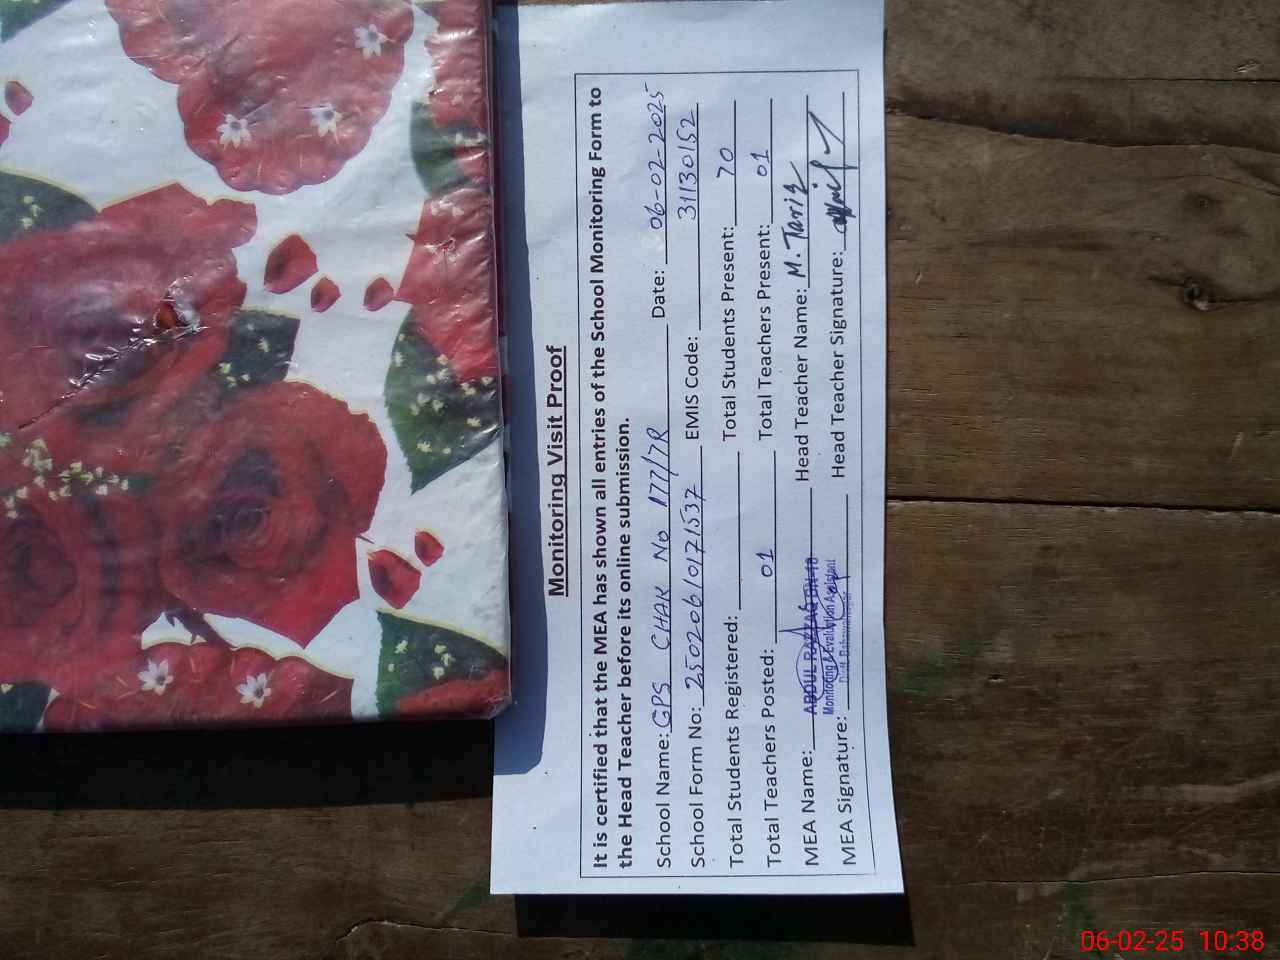 Monitoring Visit Proof
It is certified that the MEA has shown all entries of the School Monitoring Form to
the Head Teacher before its online submission.
School Name: GPS CHAK No 177/7R Date: 06-02-2025
School Form No: 25020610171537 EMIS Code: 31130152
Total Students Registered: Total Students Present: 70
Total Teachers Posted: 01 Total Teachers Present: 01
MEA Name: ABDUL RAZZAQ Head Teacher Name: M. Tariq
Monitoring & Evaluation Assistant
MEA Signature: Distt. Bahawalnagar Head Teacher Signature:
06-02-25 10:38